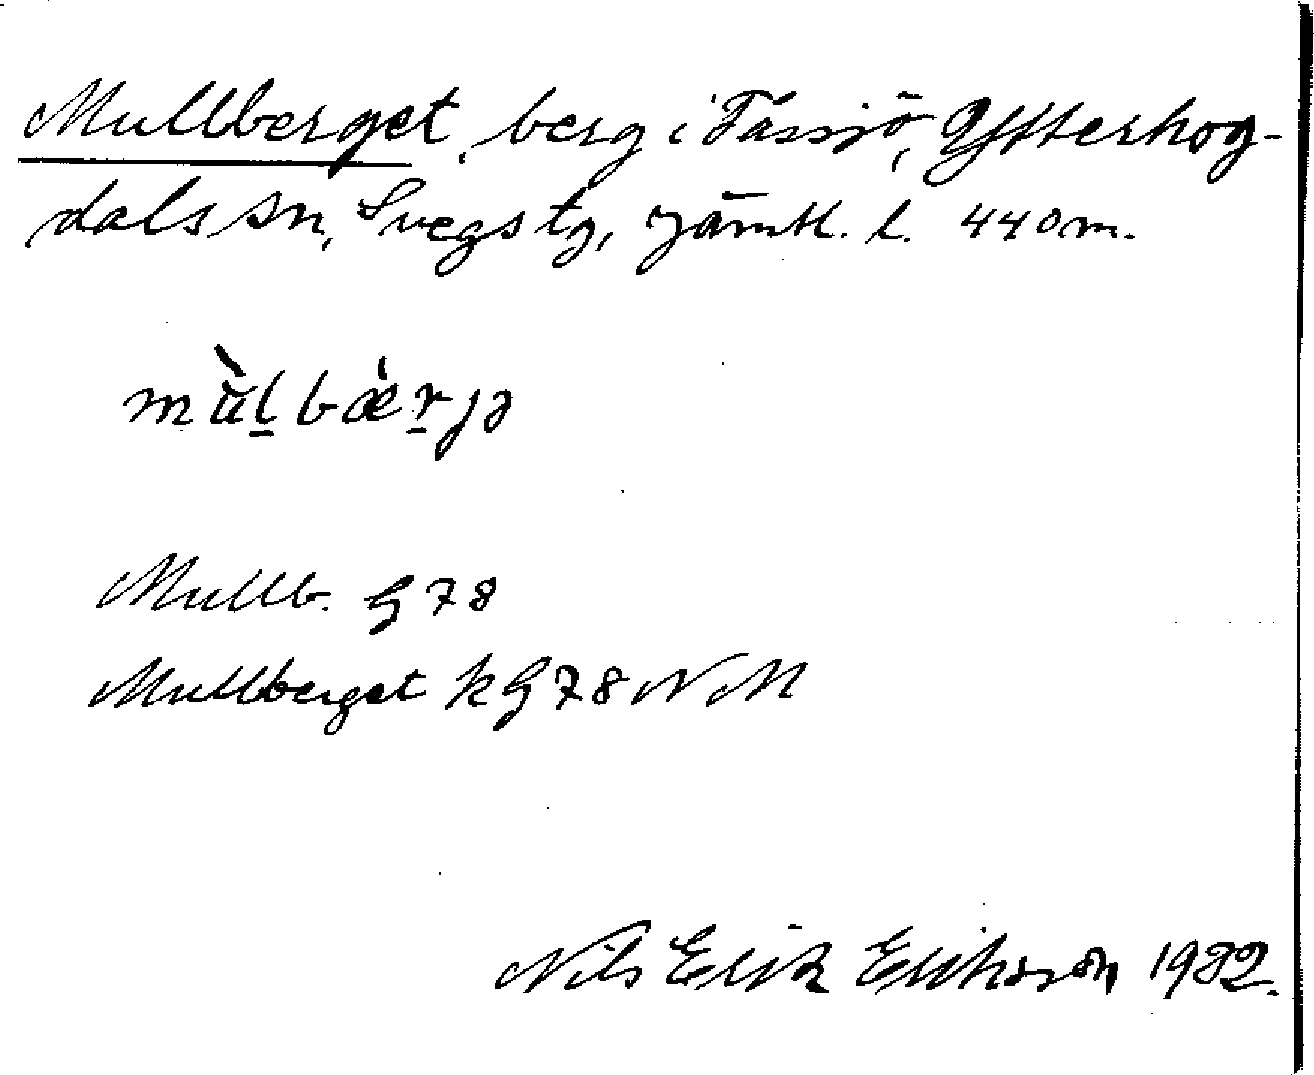 Mullberget, berg i Tåssjö, Ytterhog-
dals sn, Svegs tg, Jämtl. l. 440 m.
mùl̠bæ̀r̠jə
Mullb. G 78
Mullberget k G 78 N M
Nils Erik Eriksson 1982.